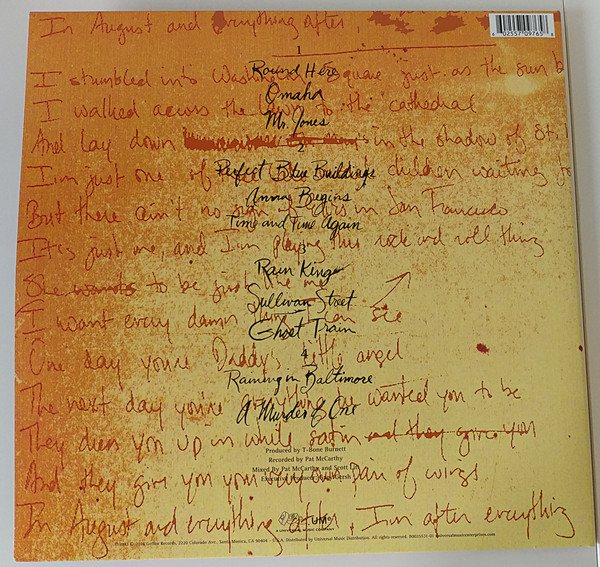 In August and Everything After,
6 02557 09765 8
1
I stumbled into Washington Square just as the sun b
Round Here
Omaha
I walked across the lawn to the cathedral
Mr. Jones
And lay down in the shadow of St.
2
I'm just one of these children waiting fo
Perfect Blue Buildings
Anna Begins
But there ain't no sign of this in San Francisco
Time and Time Again
It's just me, and I'm playing this rock and roll thing
3
Rain King
She wants to be just like me
Sullivan Street
I want every damn thing I can see
Ghost Train
One day you're Daddy's little angel
4
Raining in Baltimore
The next day you're everything he wanted you to be
A Murder of One
They dress you up in white satin and they give you
Produced by T-Bone Burnett
Recorded by Pat McCarthy
And they give you your very own pair of wings
Mixed By Pat McCarthy and Scott Litt
Executive Producer: Gary Gersh
In August and everything after, I'm after everything
UMe